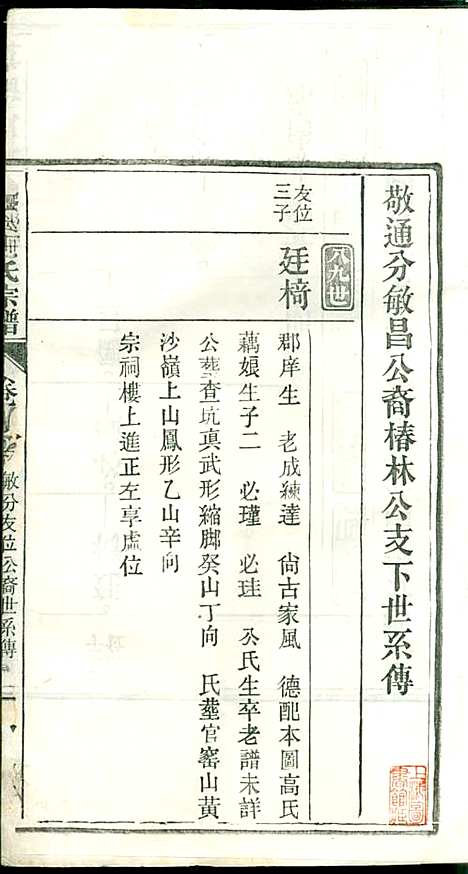 敬通分敏昌公裔椿林公支下世系傳
八九世
友位
三子
廷椅
郡庠生　老成練達　尙古家風　德配本圖高氏
藕娘生子二　必瑾　必珪　公氏生卒老譜未詳
公塟查坑眞武形縮脚癸山丁向　氏塟官窰山黃
沙嶺上山鳳形乙山辛向
宗祠樓上進正左享虛位
氏宗譜
卷
敏分友位公裔世系傳